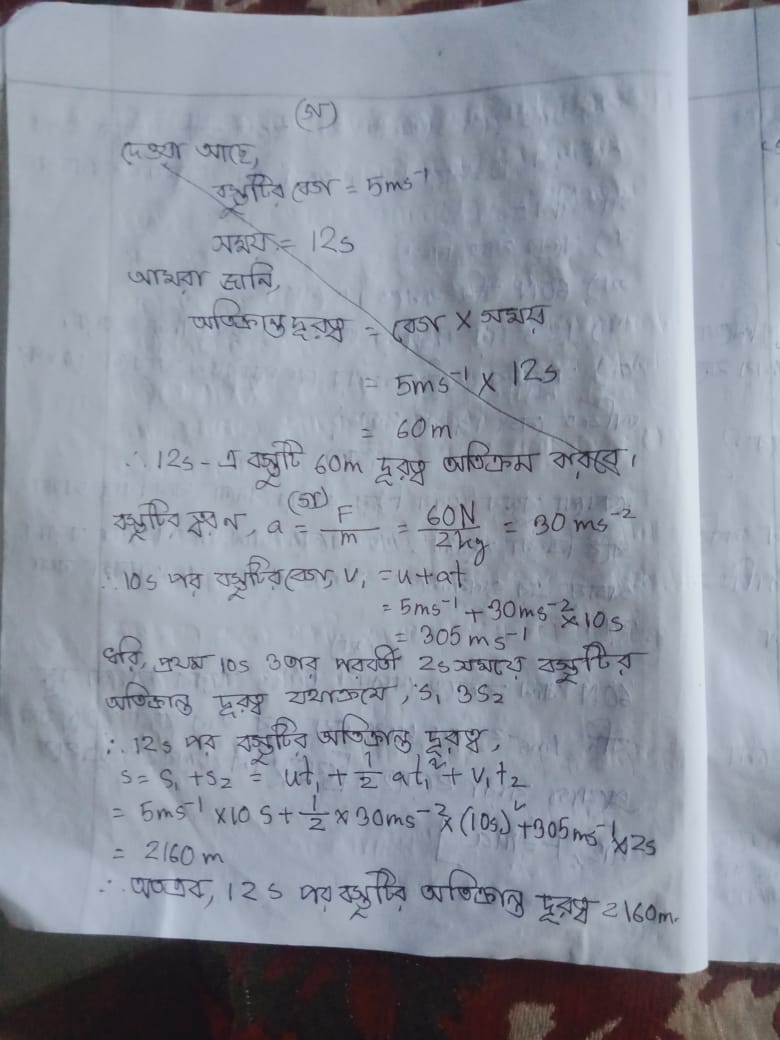 (গ)
দেওয়া আছে,
বস্তুটির বেগ = 5ms⁻¹
সময় = 12s
আমরা জানি,
অতিক্রান্ত দূরত্ব = বেগ × সময়
= 5ms⁻¹ × 12s
= 60m
∴ 12s-এ বস্তুটি 60m দূরত্ব অতিক্রম করবে।
(গ)
বস্তুটির ত্বরণ, a = F/m = 60N/2kg = 30ms⁻²
∴ 10s পর বস্তুটির বেগ, v₁ = u+at
= 5ms⁻¹ + 30ms⁻² × 10s
= 305ms⁻¹
ধরি, প্রথম 10s ও তার পরবর্তী 2s সময়ে বস্তুটির
অতিক্রান্ত দূরত্ব যথাক্রমে, s₁ ও s₂
∴ 12s পর বস্তুটির অতিক্রান্ত দূরত্ব,
s = s₁ + s₂ = ut₁ + 1/2 at₁² + v₁t₂
= 5ms⁻¹ × 10s + 1/2 × 30ms⁻² × (10s)² + 305ms⁻¹ × 2s
= 2160m
∴ অতএব, 12s পর বস্তুটির অতিক্রান্ত দূরত্ব 2160m.